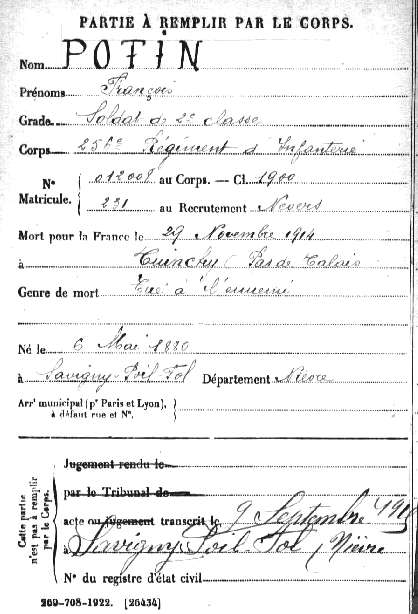 PARTIE À REMPLIR PAR LE CORPS.
Nom POTIN
Prénoms François
Grade Soldat de 2e classe
Corps 256e Régiment d'Infanterie
N° Matricule. { 012008 au Corps. — Cl. 1900
231 au Recrutement Nevers
Mort pour la France le 29 Novembre 1914
à Cuinchy (Pas de Calais
Genre de mort Tué à l'ennemi
Né le 6 Mai 1880
à Savigny-Poil-Fol Département Nièvre
Arrt municipal (pr Paris et Lyon),
à défaut rue et N°.
Cette partie n'est pas à remplir par le Corps.
Jugement rendu le
par le Tribunal de
acte ou jugement transcrit le 9 Septembre
à Savigny Poil-Fol / Nièvre
N° du registre d'état civil
269-708-1922. [26434]